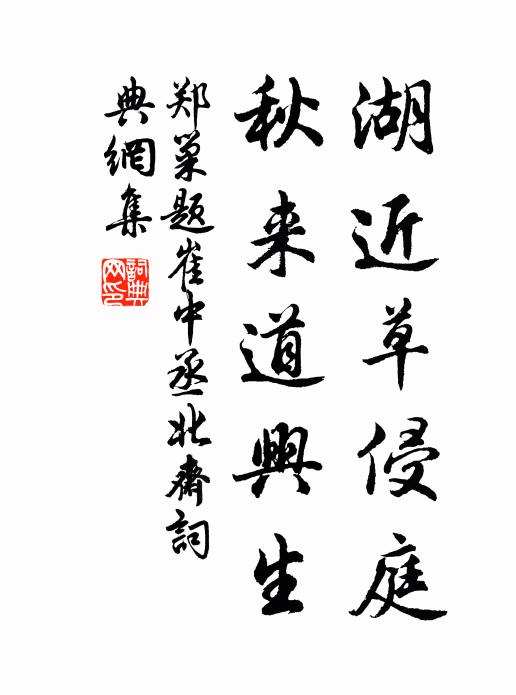 湖近草侵庭
秋来道興生
郑巢题崔中丞北齋詞
典網集
詞典
网印